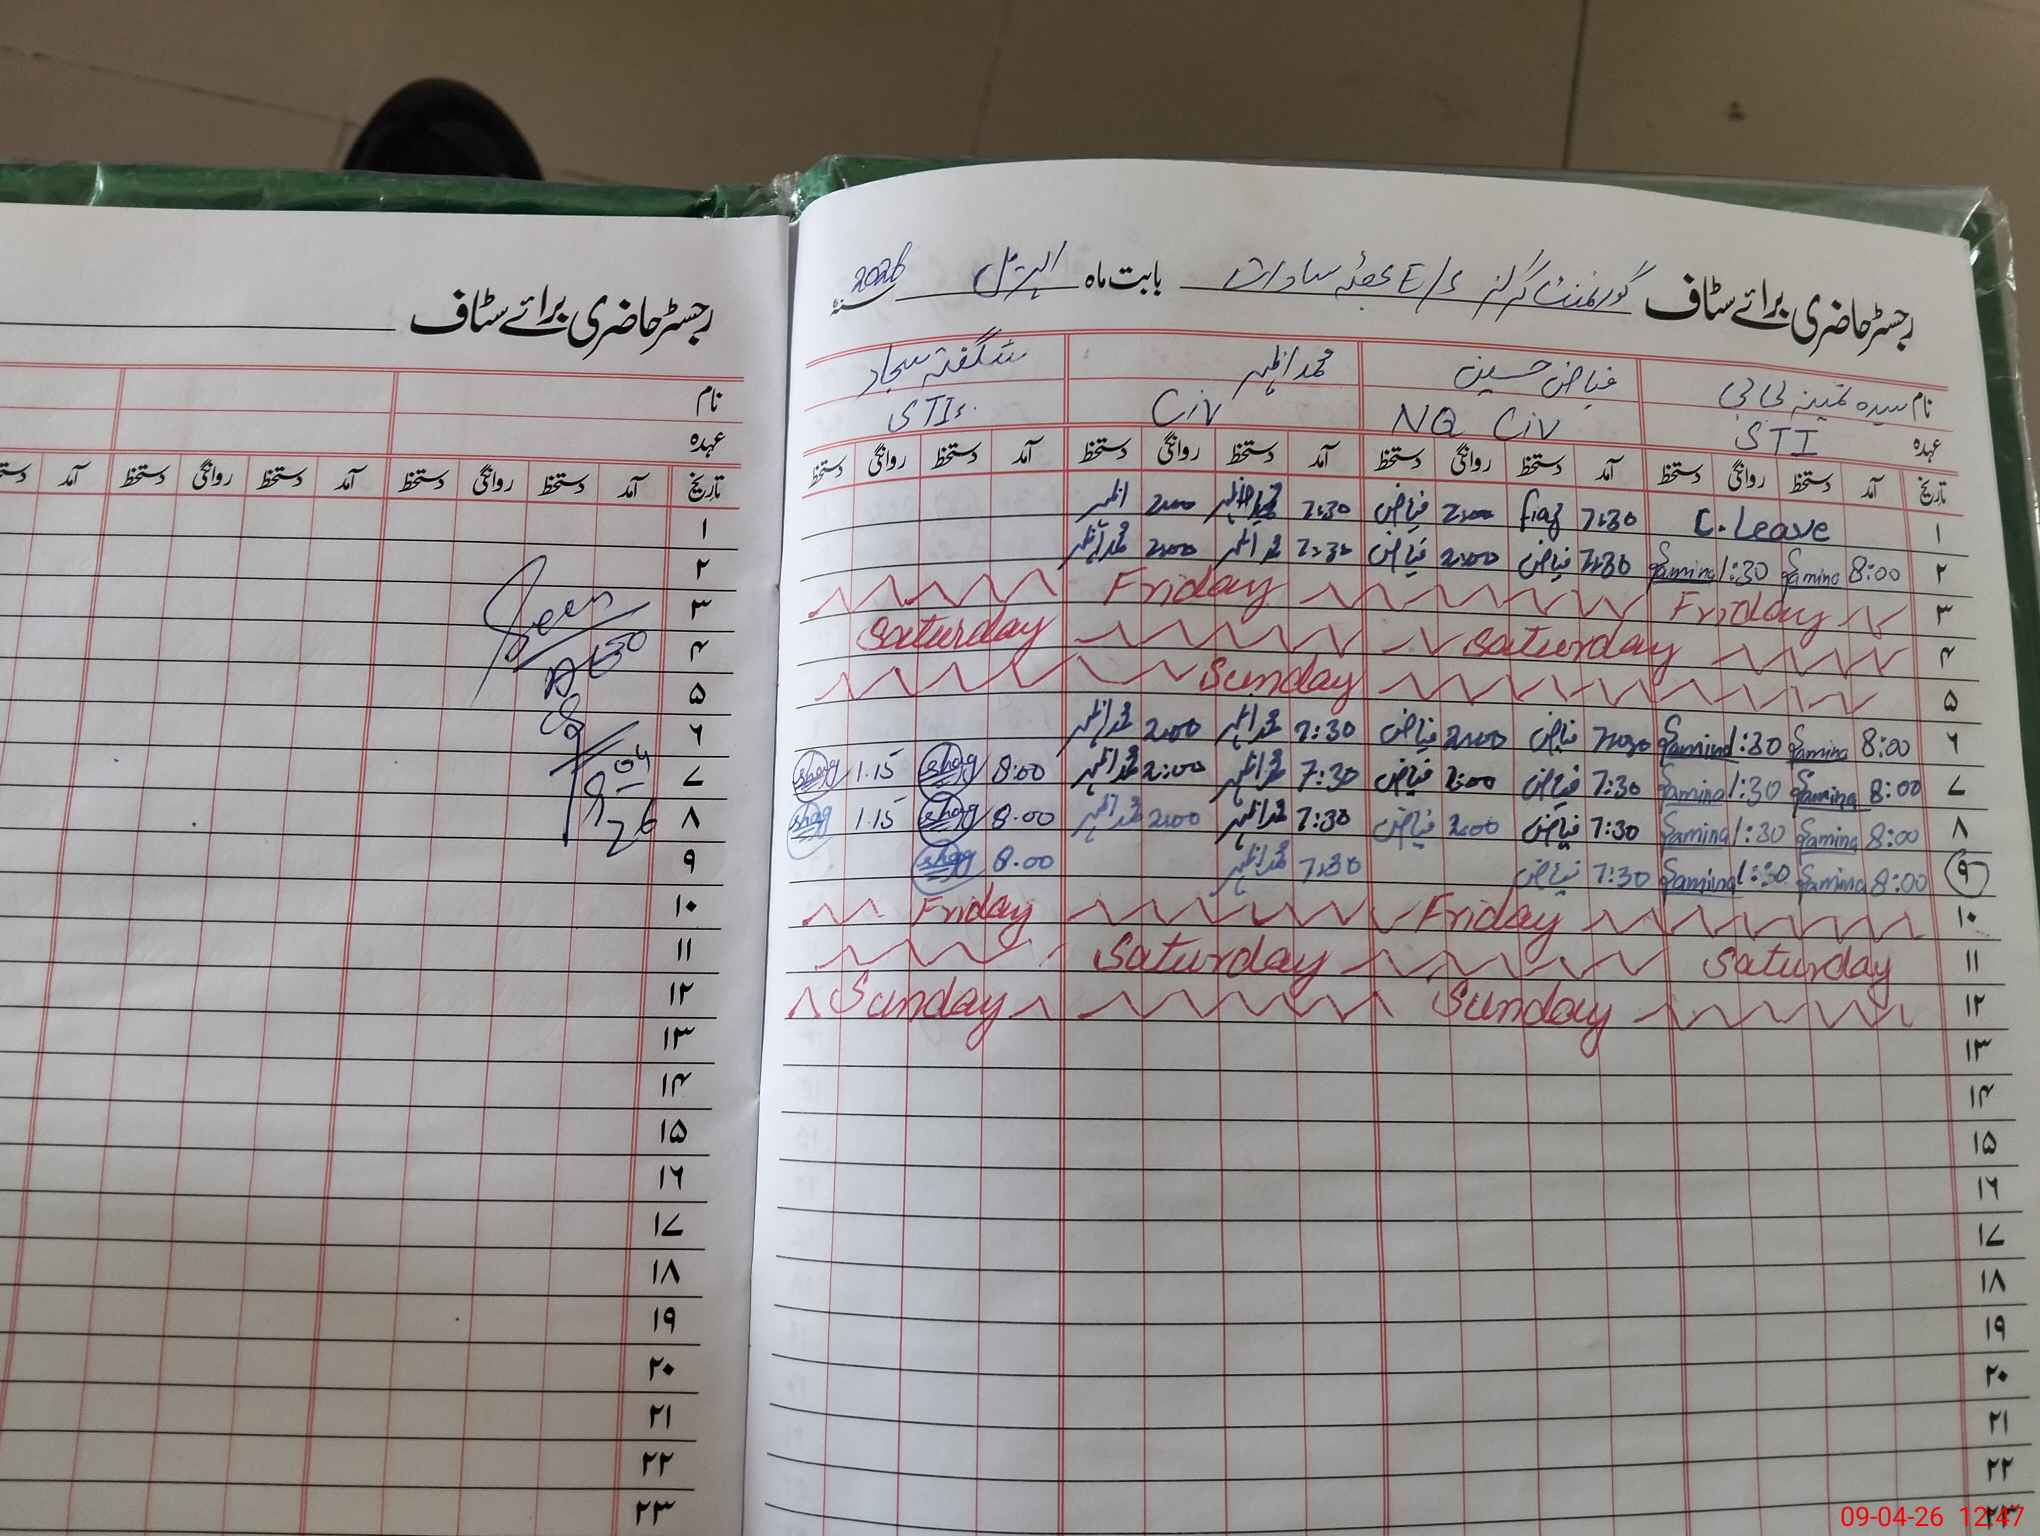 رجسٹر حاضری برائے سٹاف گورنمنٹ گرلز E/S بابت ماہ اپریل سنہ 2026
نام سیدہ ثمینہ بی بی فیاض حسین محمد اظہر شگفتہ سجاد
عہدہ STI NQ Civ Civ STI
تاریخ آمد دستخط روانگی دستخط آمد دستخط روانگی دستخط آمد دستخط روانگی دستخط آمد دستخط روانگی دستخط
۱ C. Leave 7:30 fiaz 2:00 فیاض 7:30 2:00 اظہر
۲ 8:00 Samina Samina 1:30 7:30 فیاض 2:00 فیاض 7:30 محمد اظہر 2:00 محمد اظہر
۳ Friday Friday
۴ Saturday Saturday
۵ Sunday
۶ 8:00 Samina 1:30 Samina 7:30 فیاض 2:00 فیاض 7:30 محمد اظہر 2:00 محمد اظہر
۷ 8:00 Samina 1:30 Samina 7:30 فیاض 2:00 فیاض 7:30 محمد اظہر 2:00 محمد اظہر 8:00 shag 1.15 shag
۸ 8:00 Samina 1:30 Samina 7:30 فیاض 2:00 فیاض 7:30 محمد اظہر 2:00 محمد اظہر 8.00 shag 1.15 shag
۹ 8:00 Samina 1:30 Samina 7:30 فیاض 7:30 محمد اظہر 8.00 shag
۱۰ Friday Friday
۱۱ Saturday Saturday
۱۲ Sunday Sunday
۱۳
۱۴
۱۵
۱۶
۱۷
۱۸
۱۹
۲۰
۲۱
۲۲
۲۳
رجسٹر حاضری برائے سٹاف
نام
عہدہ
تاریخ آمد دستخط روانگی دستخط آمد دستخط روانگی دستخط آمد
۱
۲
۳ Seen
۴
۵
۶
۷ 9-04
۸ 26
۹
۱۰
۱۱
۱۲
۱۳
۱۴
۱۵
۱۶
۱۷
۱۸
۱۹
۲۰
۲۱
۲۲
۲۳
09-04-26 12:47